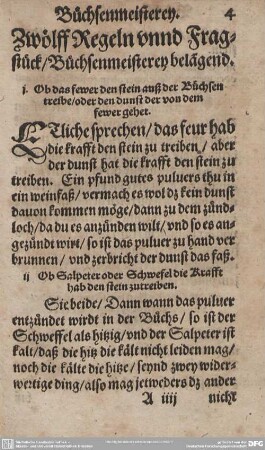 Büchsenmeisterey. 4
Zwölff Regeln vnnd Frag-
stück/Büchsenmeisterey belägend.
j. Ob das fewer den stein auß der Büchsen
treibe/oder den dunst der von dem
fewer gehet.
ETliche sprechen/das feur hab
die krafft den stein zu treiben/aber
der dunst hat die krafft den stein zu
treiben. Ein pfund gutes puluers thu in
ein weinfaß/vermach es wol dz kein dunst
dauon kommen möge/dann zu dem zünd-
loch/da du es anzünden wilt/vnd so es an-
gezündt wirt/so ist das puluer zu hand ver
brunnen/vnd zerbricht der dunst das faß.
ij Ob Salpeter oder Schwefel die Krafft
hab den stein zutreiben.
Sie beide/Dann wann das puluer
entzündet wirdt in der Büchs/so ist der
Schweffel als hitzig/vnd der Salpeter ist
kalt/daß die hitz die kält nicht leiden mag/
noch die kälte die hitze/seynd zwey wider-
wertige ding/also mag jetweders dz ander
A iiij nicht